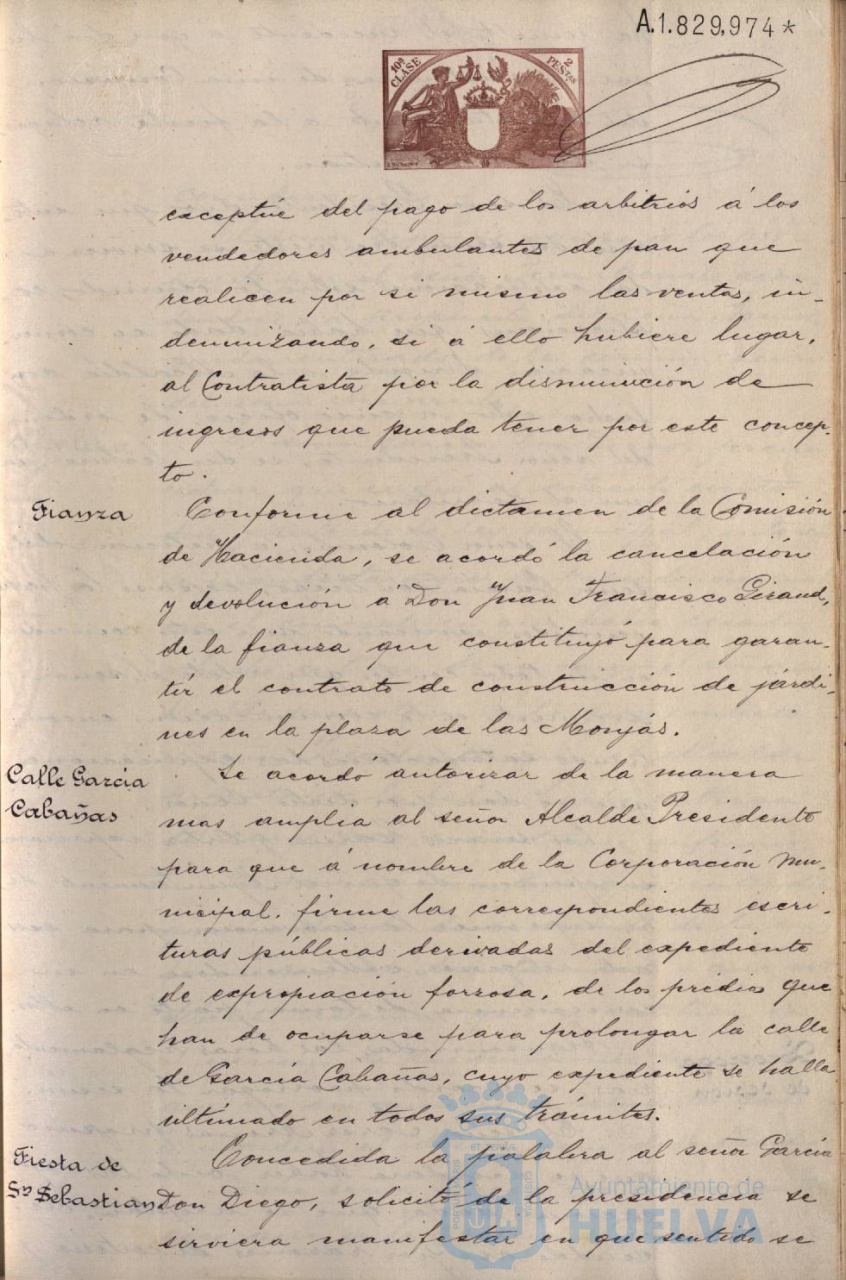 A.1.829,974*
10ª CLASE 2 PESTAS
exceptúe del pago de los arbitrios á los
vendedores ambulantes de pan que
realicen por si mismo las ventas, in-
demnizando, si á ello hubiere lugar,
al Contratista por la disminución de
ingresos que pueda tener por este concep-
to.
Fianza
Conforme al dictamen de la Comisión
de Hacienda, se acordó la cancelación
y devolución á Don Juan Francisco Giraud,
de la fianza que constituyó para garan-
tir el contrato de construcción de jardi-
nes en la plaza de las Monjas.
Calle García
Cabañas
Se acordó autorizar de la manera
mas amplia al señor Alcalde Presidente
para que á nombre de la Corporación Mu-
nicipal, firme las correspondientes escri-
turas públicas derivadas del expediente
de expropiación forzosa, de los predios que
han de ocuparse para prolongar la calle
de García Cabañas, cuyo expediente se halla
ultimado en todos sus trámites.
Fiesta de
Sn Sebastian
Concedida la palabra al señor García
Don Diego, solicitó de la presidencia se
sirviera manifestar en que sentido se
Ayuntamiento de
HUELVA